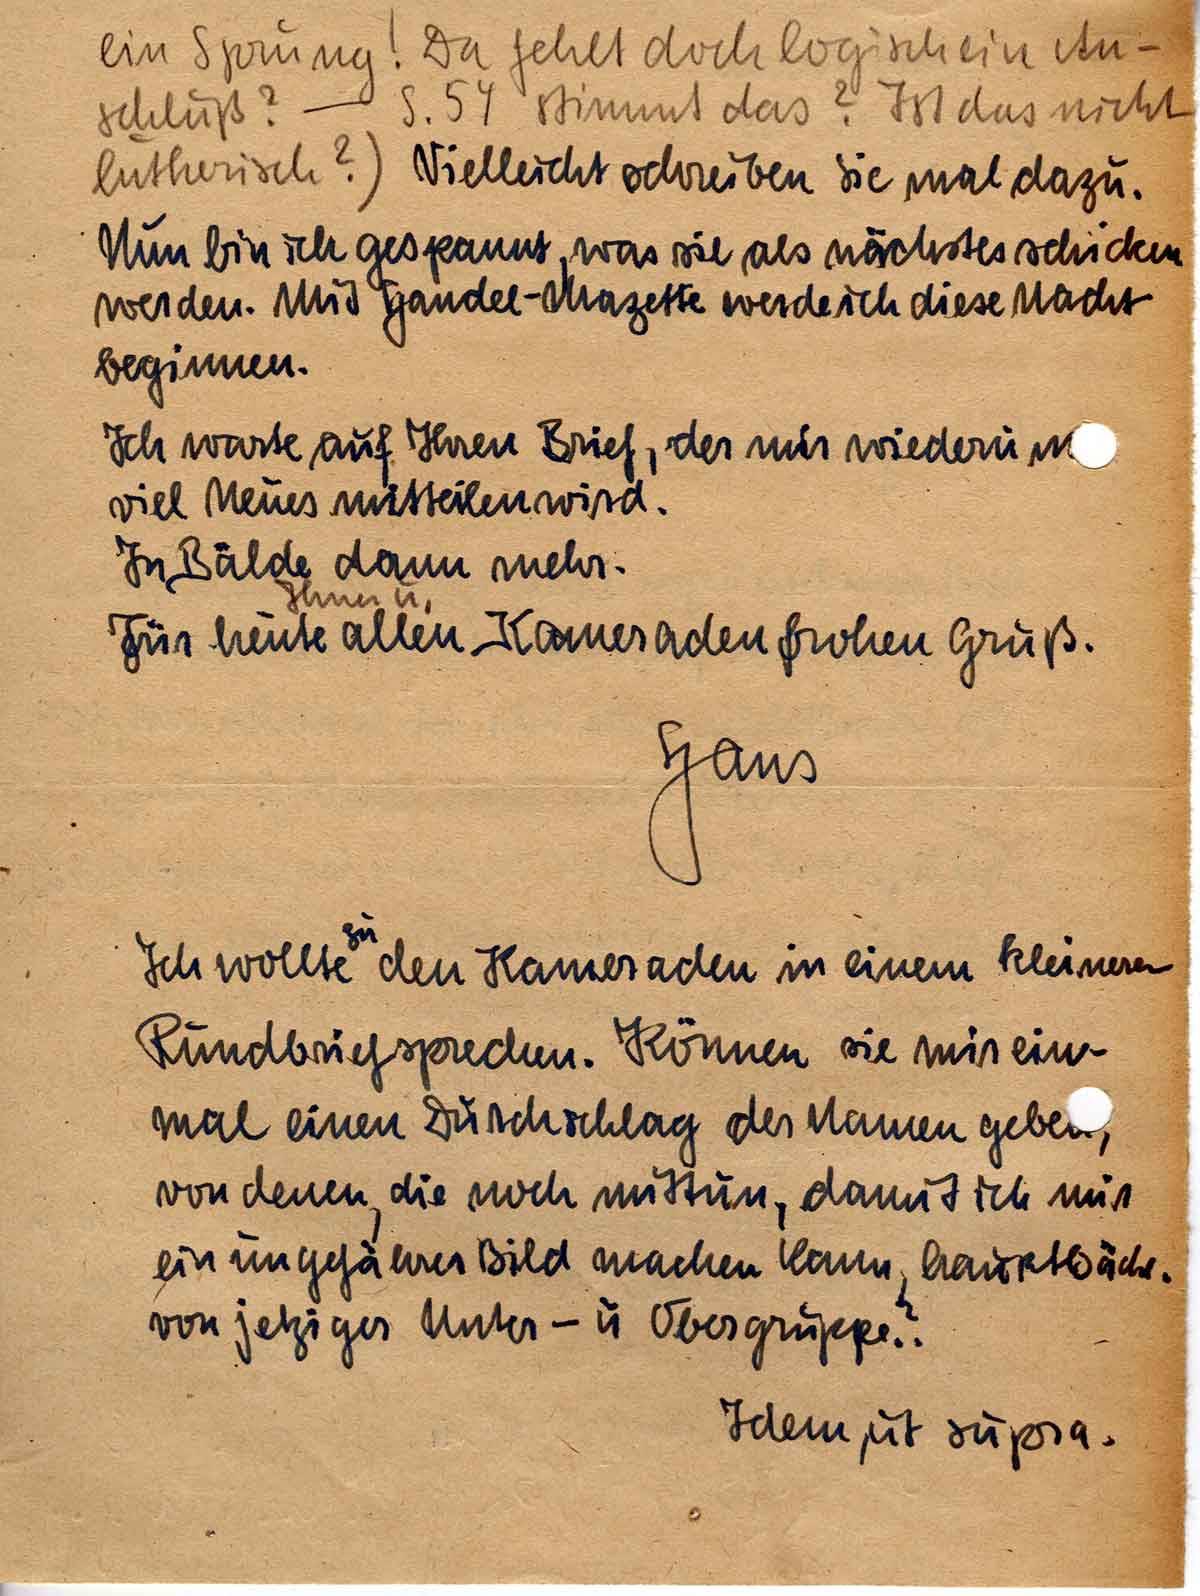 ein Sprung! Da fehlt doch logisch ein An-
schluß? — S. 54 stimmt das? Ist das nicht
lutherisch?) Vielleicht schreiben sie mal dazu.
Nun bin ich gespannt, was sie als nächstes schicken
werden. Mit Handel-Mazette werde ich diese Nacht
beginnen.
Ich warte auf Ihren Brief, der mir wiederum
viel Neues mitteilen wird.
In Bälde dann mehr.
Ihnen u.
Für heute allen Kameraden frohen Gruß.
Hans
Ich wollte zu den Kameraden in einem kleineren
Rundbrief sprechen. Können sie mir ein-
mal einen Durchschlag der Namen geben,
von denen, die noch mittun, damit ich mir
ein ungefähres Bild machen kann, hauptsächl.
von jetziger Unter- u Obergruppe?
Idem, ut supra.